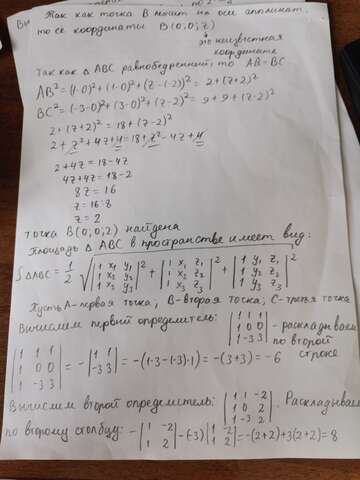 Вы
Так как точка B лежит на оси аппликат,
то её координаты B(0;0;z)
↓
это неизвестная
координата
Так как △ABC равнобедренный, то AB=BC
AB²=(1-0)²+(1-0)²+(z-(-2))²=2+(z+2)²
BC²=(-3-0)²+(3-0)²+(z-2)²=9+9+(z-2)²
2+(z+2)²=18+(z-2)²
2+z²+4z+4=18+z²-4z+4
2+4z=18-4z
4z+4z=18-2
8z=16
z=16:8
z=2
точка B(0;0;2) найдена
Площадь △ABC в пространстве имеет вид:
S△ABC = 1/2 √(|1 x₁ y₁; 1 x₂ y₂; 1 x₃ y₃|² + |1 x₁ z₁; 1 x₂ z₂; 1 x₃ z₃|² + |1 y₁ z₁; 1 y₂ z₂; 1 y₃ z₃|²)
Пусть A-первая точка; B-вторая точка; C-третья точка
Вычислим первый определитель: |1 1 1; 1 0 0; 1 -3 3| - раскладываем
по второй
строке
|1 1 1; 1 0 0; 1 -3 3| = -|1 1; -3 3| = -(1·3-(-3)·1) = -(3+3) = -6
Вычислим второй определитель: |1 1 -2; 1 0 2; 1 -3 2|. Раскладываем
по второму столбцу: -|1 -2; 1 2| -(-3)|1 -2; 1 2| = -(2+2)+3(2+2)=8